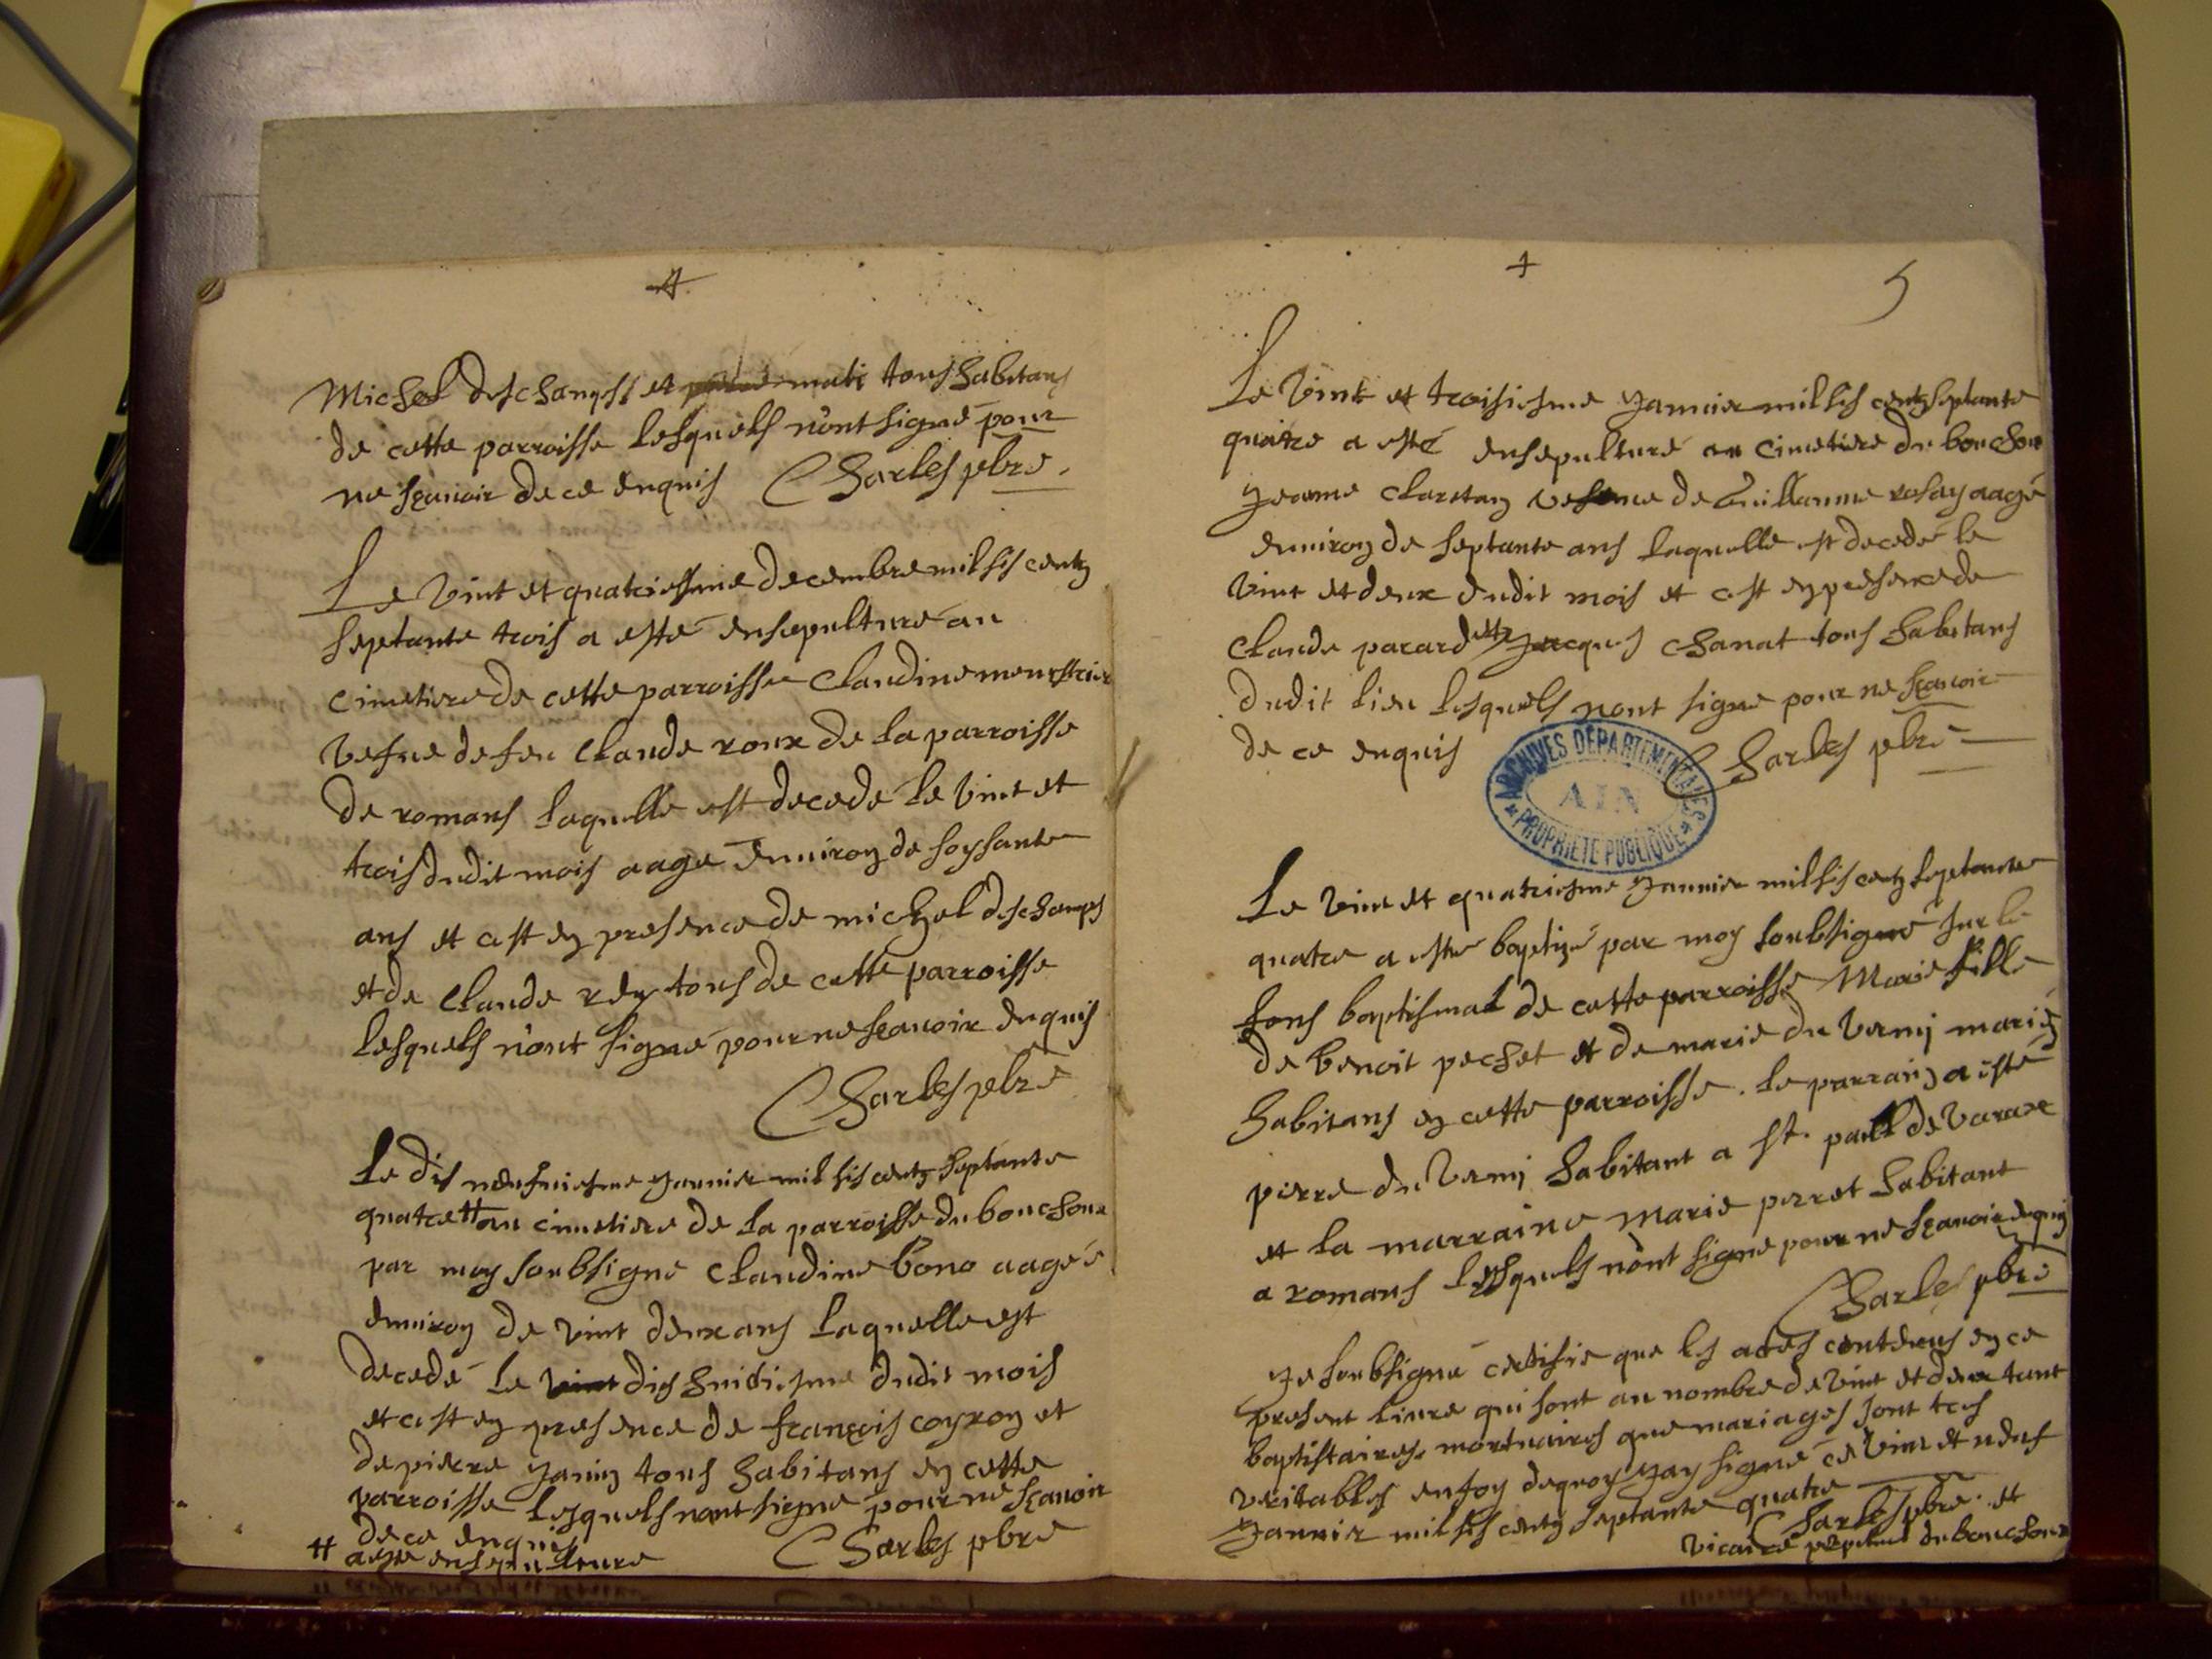 Michel deschamps et mati tous habitans
de cette parroisse lesquels n'ont signé pour
ne sçauoir de ce enquis Charles pbre.
Le vint et quatriesme decembre mil sis centz
septante trois a esté ensepulturé au
cimetiere de cette parroisse Claudine monestrier
vefue de feu Claude roux de la parroisse
de romans laquelle est decede le vint et
trois dudit mois aage enuiron de soysante
ans et cest en presence de michel deschamps
et de Claude rey tous de cette parroisse
lesquels n'ont signé pour ne sçauoir enquis
Charles pbre
Le dis neufuiesme Januier mil sis centz septante
quatre # au cimetiere de la parroisse du bouchoux
par moy soubsigné Claudine bono aagée
enuiron de vint deux ans laquelle est
decedé le vint dis huitiesme dudit mois
et cest en presence de françois coyron et
de pierre Janin tous habitans en cette
parroisse lesquels n'ont signe pour ne sçauoir
de ce enquis Charles pbre
# a este ensepulture
+ 5
Le vint et troisiesme Januier mil sis centz septante
quatre a esté ensepulturé au cimetiere du bouchoux
Jeanne vefue de Guillaume rosay aagé
enuiron de septante ans laquelle est decedé le
vint et deux dudit mois et cest en presence de
Claude parard et Jacques Chanat tous habitans
dudit lieu lesquels n'ont signe pour ne sçauoir
de ce enquis Charles pbre
ARCHIVES DÉPARTEMENTALES
AIN
PROPRIÉTÉ PUBLIQUE
Le vint et quatriesme Januier mil sis centz septante
quatre a este baptizé par moy soubsigné sur le
fons baptismal de cette parroisse Marie fille
de benoit pechet et de marie du verny mariés
habitans en cette parroisse. le parrain a esté
pierre du verny habitant a st. paul de varax
et la marraine marie perret habitant
a romans lesquels n'ont signe pour ne sçauoir enquis
Charles pbre
Je soubsigné certifie que les actes contenus en ce
present liure qui sont au nombre de vint et deux tant
baptistaires mortuaires que mariages sont tres
veritables en foy dequoy Jay signé ce vint et neuf
Januier mil sis centz septante quatre
Charles pbre et
vicaire perpetuel du bouchoux